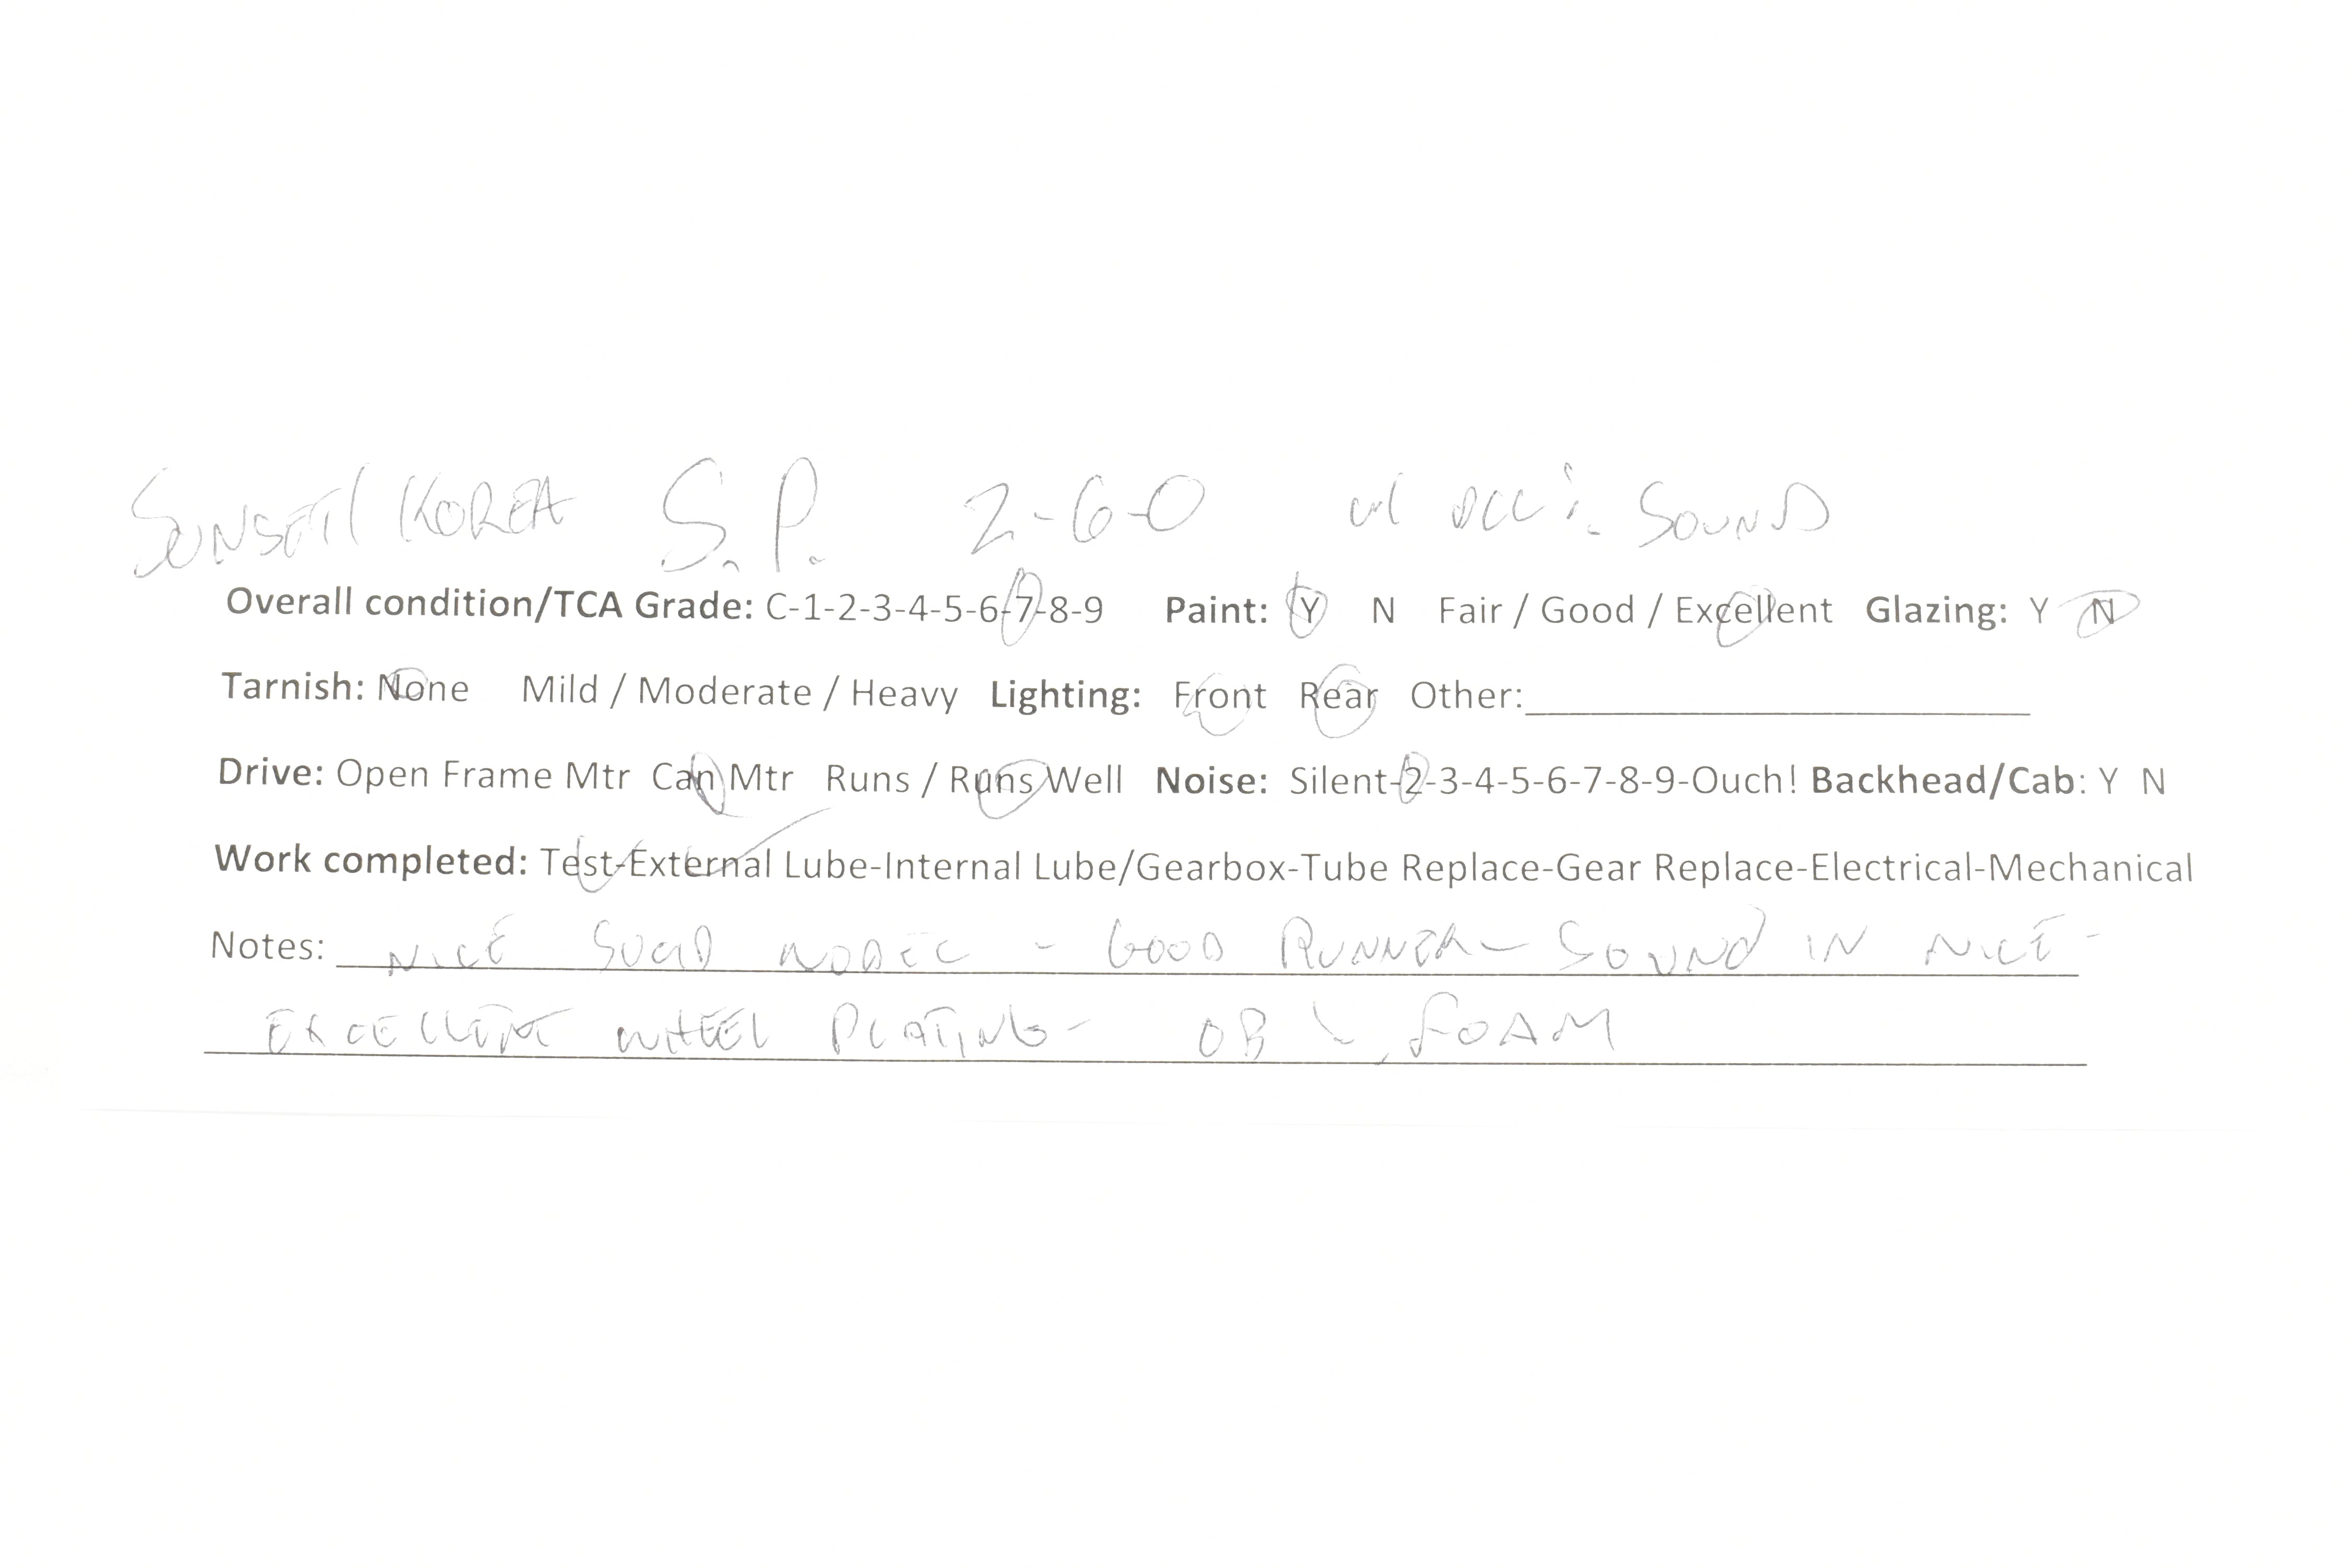 SUNSET/KOREA S.P. 2-6-0 w/ DCC & SOUND
Overall condition/TCA Grade: C-1-2-3-4-5-6-7-8-9 Paint: Y N Fair / Good / Excellent Glazing: Y N
Tarnish: None Mild / Moderate / Heavy Lighting: Front Rear Other:
Drive: Open Frame Mtr Can Mtr Runs / Runs Well Noise: Silent-2-3-4-5-6-7-8-9-Ouch! Backhead/Cab: Y N
Work completed: Test-External Lube-Internal Lube/Gearbox-Tube Replace-Gear Replace-Electrical-Mechanical
Notes: NICE SOLID MODEL - GOOD RUNNER - SOUND IN NICE -
EXCELLENT WHEEL PLATING - OB FOAM